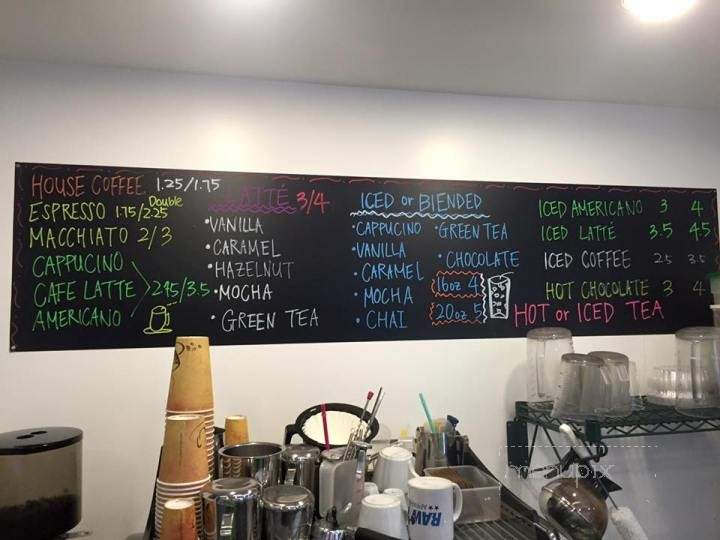 HOUSE COFFEE 1.25/1.75
ESPRESSO 1.75/2.25 Double
MACCHIATO 2/3
CAPPUCINO
CAFE LATTE 2.95/3.5
AMERICANO
LATTÉ 3/4
•VANILLA
•CARAMEL
•HAZELNUT
•MOCHA
•GREEN TEA
ICED or BLENDED
•CAPPUCINO •GREEN TEA
•VANILLA
•CARAMEL •CHOCOLATE
•MOCHA 16oz 4
•CHAI 20oz 5
ICED AMERICANO 3 4
ICED LATTÉ 3.5 4.5
ICED COFFEE 2.5 3.5
HOT CHOCOLATE 3 4
HOT or ICED TEA
RAW
menupix